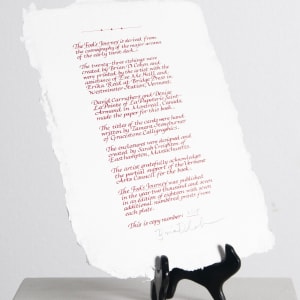 The Fool's Journey is derived from
the iconography of the major arcana
of the early tarot deck.
The twenty-three etchings were
created by Brian D. Cohen and
were printed by the artist with the
assistance of Eve Mc Neill and
Erika Radl at Bridge Press in
Westminster Station, Vermont.
David Carruthers and Denise
LaPointe of La Papeterie Saint-
Armand in Montreal, Canada,
made the paper for this book.
The titles of the cards were hand
written by
of Gracestone Calligraphics.
The enclosures were designed and
created by Sarah Creighton of
Easthampton, Massachusetts.
The artist gratefully acknowledges
the partial support of the Vermont
Arts Council for the book.
The Fool's Journey was published
in the year two thousand and seven
in an edition of eighteen with seven
additional numbered prints from
each plate.
This is copy number: